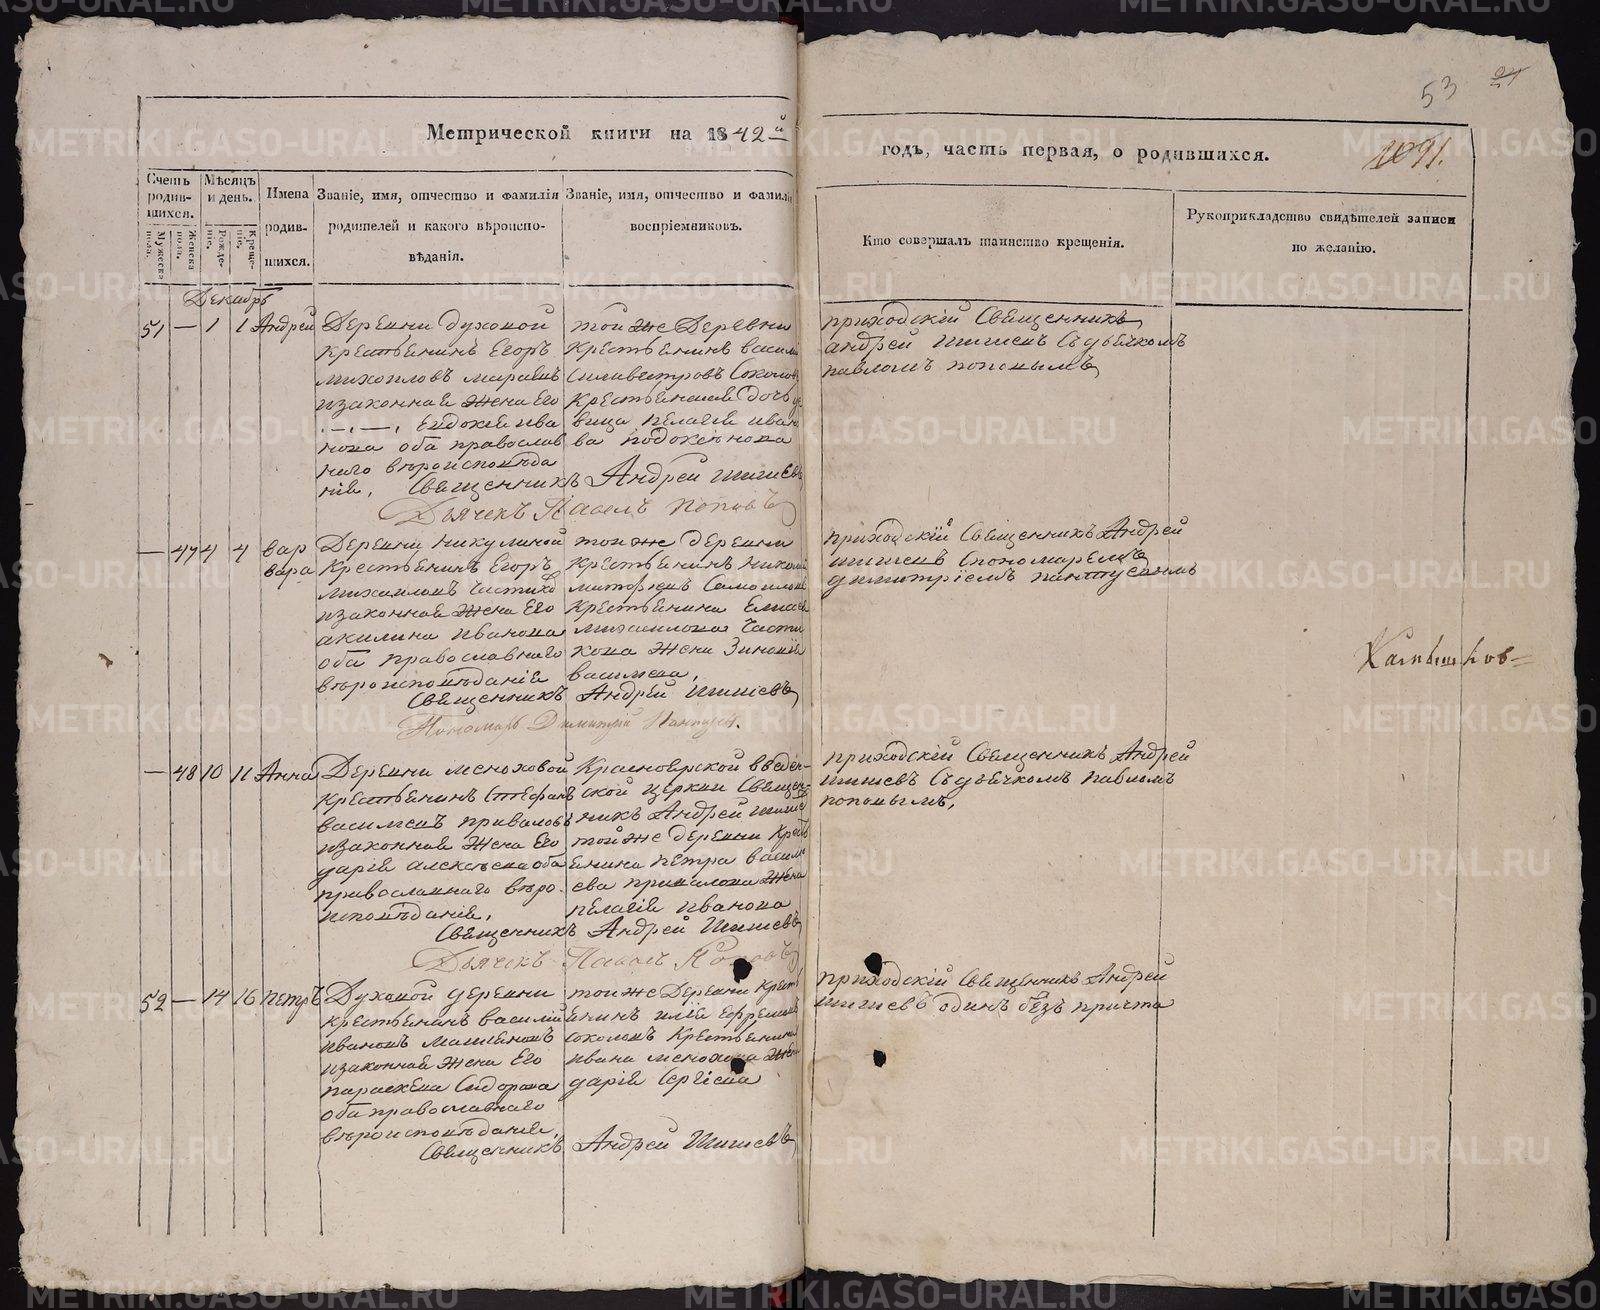 53
1091.
Метрической книги на 1842й
годъ, часть первая, о родившихся.
Счетъ родившихся.
Мужеска пола.
Женска пола.
Мѣсяцъ и день.
Рожденіе.
Крещеніе.
Имена родившихся.
Званіе, имя, отчество и фамилія родителей и какого вѣроисповѣданія.
Званіе, имя, отчество и фамилія воспріемниковъ.
Кто совершалъ таинство крещенія.
Рукоприкладство свидѣтелей записи по желанію.
Декабрь
51 — 1 1 Андрей
Деревни духовой
крестьянинъ Егоръ
михайловъ
изаконная жена Его
Евдокия ива
нова оба православ
наго вѣроисповѣда
ніе.
той же Деревни
крестьянинъ васили
Силивестровъ Соколовъ
крестьянская дочь де
вица пелагия ивано
ва
Священникъ Андрей Шишевъ
Дьячекъ Павелъ Поповъ
приходскій Священникъ
андрей шишевъ Съ дьячкомъ
павломъ поповымъ
— 47 4 4 вар
вара
Деревни никулиной
Крестьянинъ Егоръ
михаиловъ Чистяко
изаконная жена Его
акилина иванова
оба православнаго
вѣроисповѣданіе
той же деревни
крестьянинъ никола
Самоилов
крестьянина
михаилова Чистя
кова жена Зиновия
васильева.
Священникъ Андрей Шишевъ
Пономарь Димитрий Пантуев.
приходскій Священникъ Андрей
шишевъ Спономаремъ
димитріемъ пантуевымъ
Хамьянов
— 48 10 11 Анна
Деревни меноховой
Крестьянинъ Стефанъ
васильевъ приваловъ
изаконная жена Его
дария алексѣева оба
православнаго вѣро
исповѣданіе.
Красноярской введен
ской церкви Священ
никъ Андрей шише
той же деревни крест
янина петра василь
ева привалова жена
пелагия иванова
Священникъ Андрей Шишевъ
Дьячекъ Павелъ Поповъ
приходскій Священникъ Андрей
шишевъ Съ дьячкомъ павломъ
поповымъ.
52 — 14 16 петръ
Духовой деревни
крестьянинъ василий
ивановъ
изаконная жена Его
параскева Сидорова
оба православнаго
вѣроисповѣданіе.
той же Деревни крест
янинъ илия Ефремовъ
соколовъ крестьянина
ивана менохова жена
дария Сергиева
Священникъ Андрей Шишевъ
приходскій Священникъ Андрей
шишевъ одинъ безъ причта
METRIKI.GASO-URAL.RU